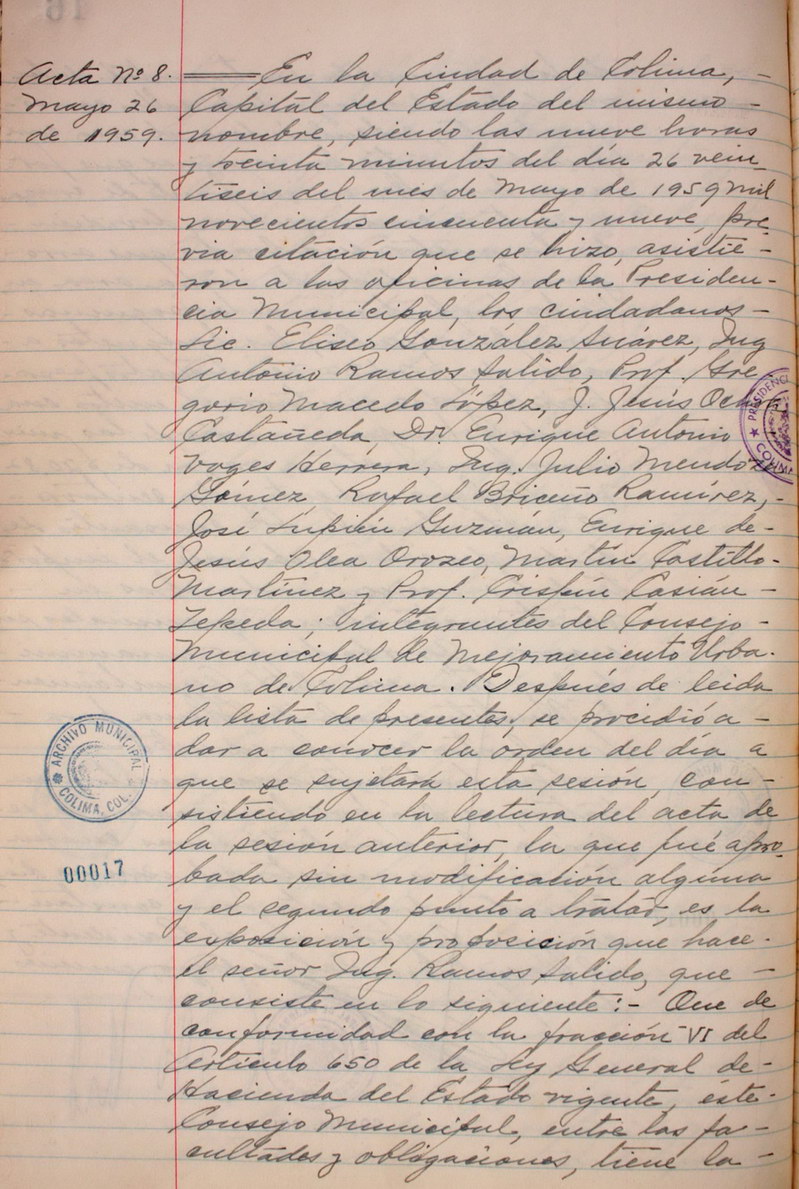 Acta Nº 8.
Mayo 26
de 1959.
En la Ciudad de Colima, -
Capital del Estado del mismo -
nombre, siendo las nueve horas
y treinta minutos del día 26 vein_
tiseis del mes de Mayo de 1959 mil
novecientos cincuenta y nueve, pre_
via citación que se hizo, asistie -
ron a las oficinas de la Presiden-
cia Municipal, los ciudadanos -
Lic. Eliseo González Suárez, Ing
Antonio Ramos Salido, Prof. Gre
gorio Macedo López, J. Jesús Ochoa
Castañeda, Dr. Enrique Antonio
Voges Herrera, Ing. Julio Mendoza
Gómez, Rafael Briceño Ramírez, -
José Lupién Guzmán, Enrique de -
Jesús Olea Orozco, Martín Castillo -
Martínez y Prof. Crispín Casián -
Zepeda; integrantes del Consejo -
Municipal de Mejoramiento Urba -
no de Colima. Después de leida
la lista de presentes, se procidió a -
dar a conocer la orden del día a
que se sujetará esta sesión, con -
sistiendo en la lectura del acta de
la sesión anterior, la que fué apro_
bada sin modificación alguna
y el segundo punto a tratar, es la
exposición y proposición que hace -
el señor Ing. Ramos Salido, que -
consiste en lo siguiente: - Que de
conformidad con la fracción VI del
Artículo 650 de la Ley General de -
Hacienda del Estado vigente, éste -
Consejo Municipal, entre las fa -
cultades y obligaciones, tiene la -
PRESIDENCIA
COLIMA
ARCHIVO MUNICIPAL
COLIMA, COL.
00017
16